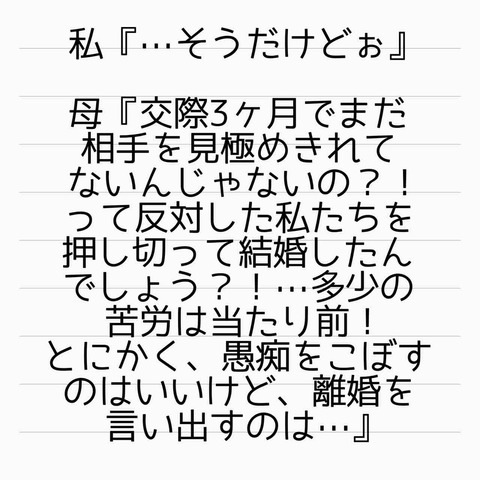 私『…そうだけどぉ』
母『交際3ヶ月でまだ
相手を見極めきれて
ないんじゃないの？！
って反対した私たちを
押し切って結婚したん
でしょう？！…多少の
苦労は当たり前！
とにかく、愚痴をこぼす
のはいいけど、離婚を
言い出すのは…』